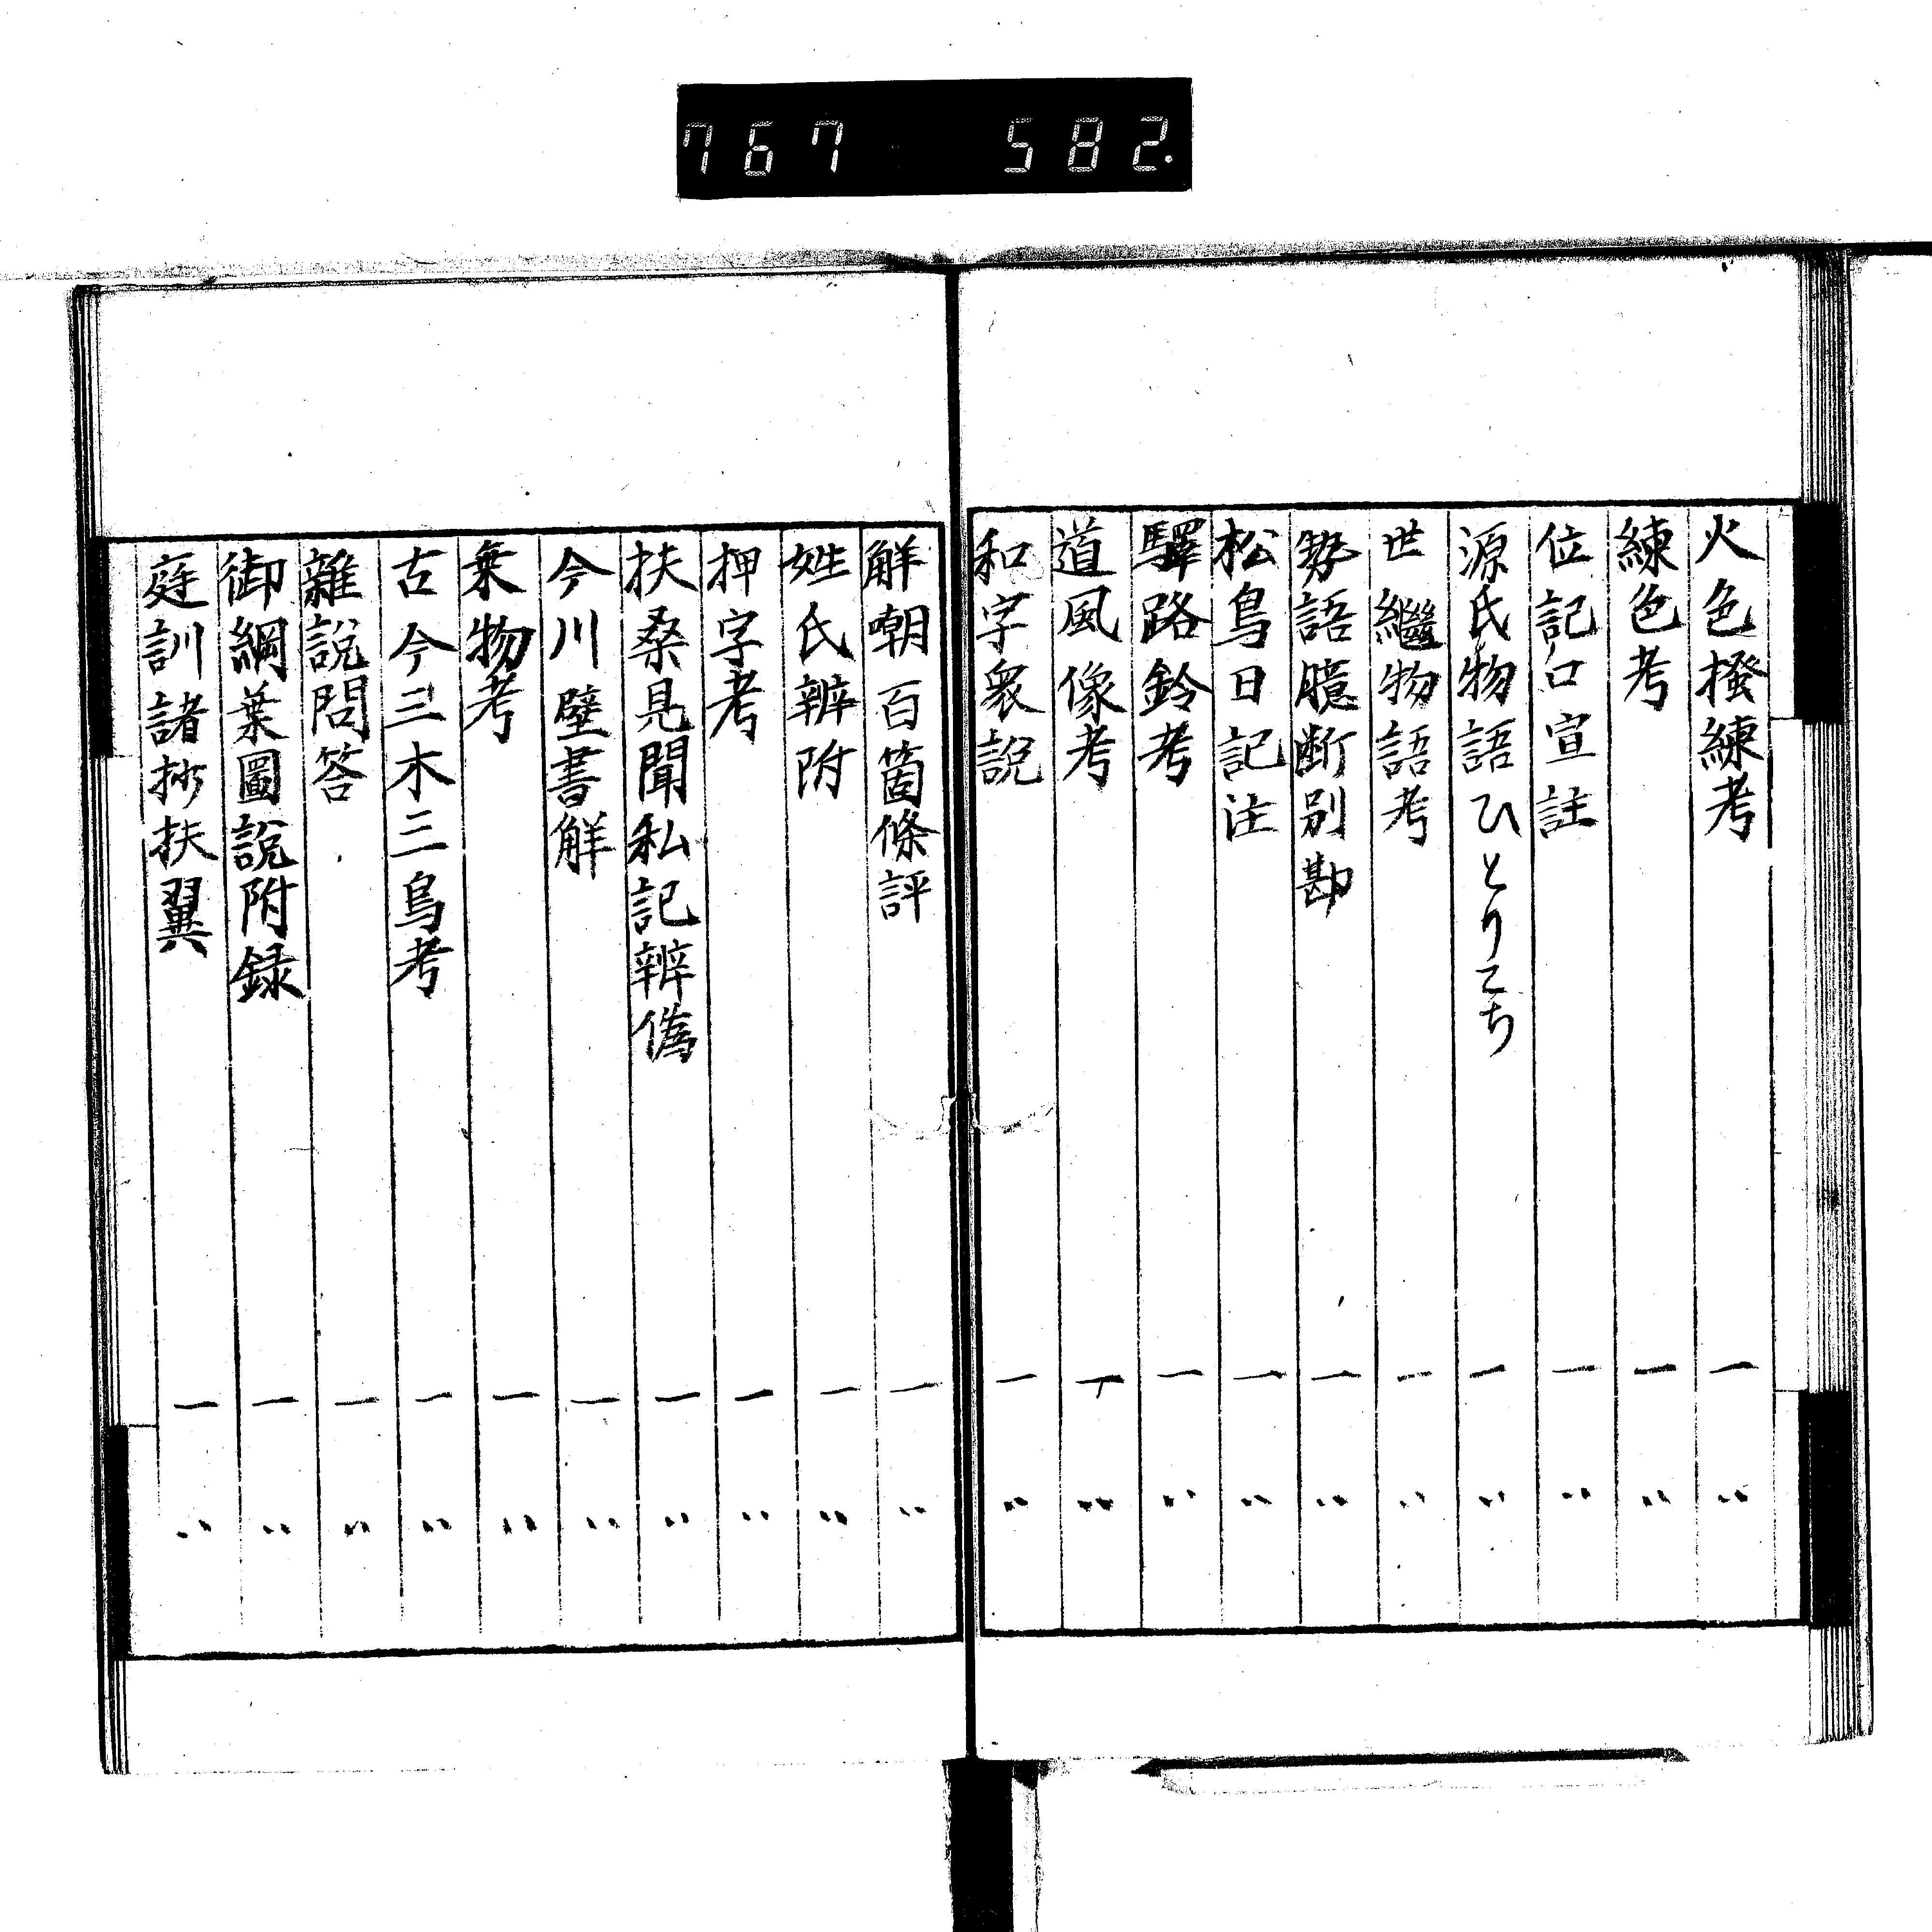 767 582.
火色橃練考 一 〃
練色考 一 〃
位記口宣註 一 〃
源氏物語ひとりこち 一 〃
世繼物語考 一 〃
勢語臆断別勘 一 〃
松島日記注 一 〃
驛路鈴考 一 〃
道風像考 一 〃
和字衆說 一 〃
解嘲百箇條評 一 〃
姓氏辨附 一 〃
押字考 一 〃
扶桑見聞私記辨偽 一 〃
今川壁書解 一 〃
乗物考 一 〃
古今三木三鳥考 一 〃
雜說問答 一 〃
御綱葉圖說附録 一 〃
庭訓諸抄扶翼 一 〃